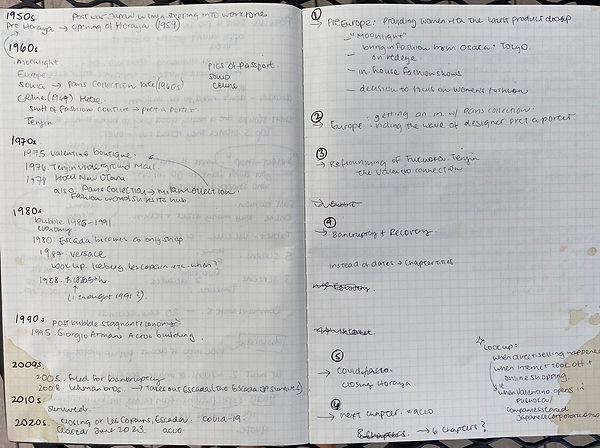 1950s Post war Japan women stepping into workforce
Pre Horaya → opening of Horaya (1959)
1960s
Moonlight
Europe
Sowa → Paris Collection late (1960s)
Celine (1969)
shift of Fashion couture → pret a porter
Tenjin
Pics of passport
Sowa
Celine
1970s
1975 Valentino boutique
1976 Tenjin Underground Mall
1978 Hotel New Otani
also Paris Collection → Milan Collection
Fashion world shifts its hub
1980s
bubble 1986-1991
economy
1980 Escada becomes as only shop
1987 Versace
look up Iceberg, les Copains etc. when?
1988
↑
(I thought 1991?)
1990s Post bubble stagnant economy
1995 Giorgio Armani Acros building
2000s
2005 Filed for bankruptcy
2008 Lehman bros. → takes out Escada
2010s
survived
2020s closing or les Copains, Escada covid-19
closed June 2023 acco
① Pre Europe: Providing women with the latest product
→ "Moonlight"
- bring in fashion from Osaka + Tokyo
on redeye
- in-house fashion shows
- decision to focus on women's fashion
② Europe: getting an in w/ Paris collection
: riding the wave of designer pret a porter
③ Reflourishing of Fukuoka Tenjin
the Valentino connection
④
→ Bankruptcy + Recovery
instead of dates → chapter titles
⑤
→ Covid/acco
closing Horaya
→ next chapter → acco
8 chapters → 6 chapters?
look up:
when direct selling happened
when internet took off +
online shopping
when Valentino opens in
Fukuoka /
Japanese corporation